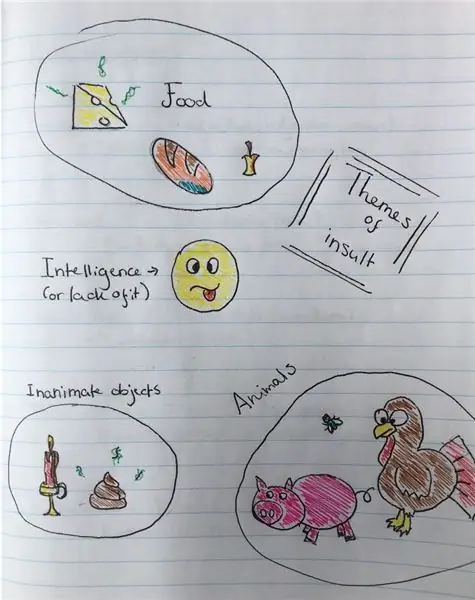 Food
Themes
of
insult
Intelligence →
(or lack of it)
Inanimate objects
Animals